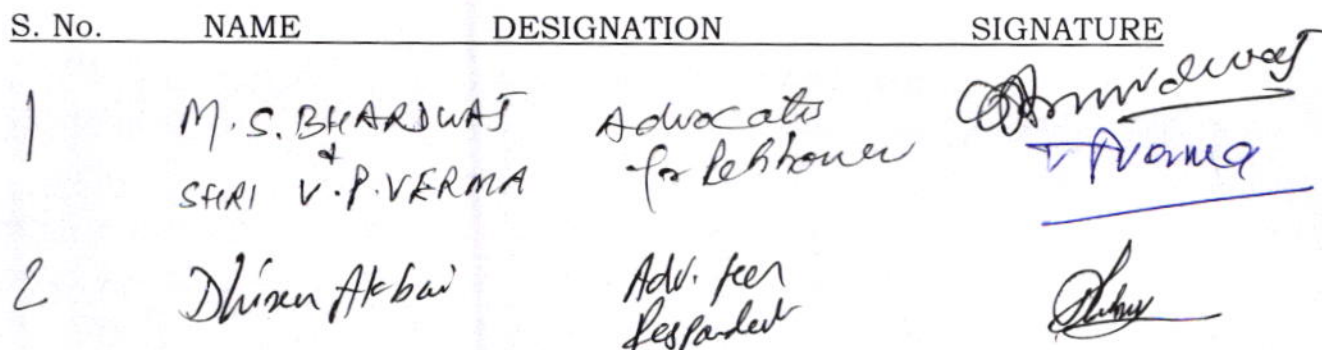 S. No. NAME DESIGNATION SIGNATURE
1 M.S. BHARDWAJ Advocate
& for Petitioner
SHRI V.P. VERMA
2 Dhiren Akbari Adv. for
Respondent